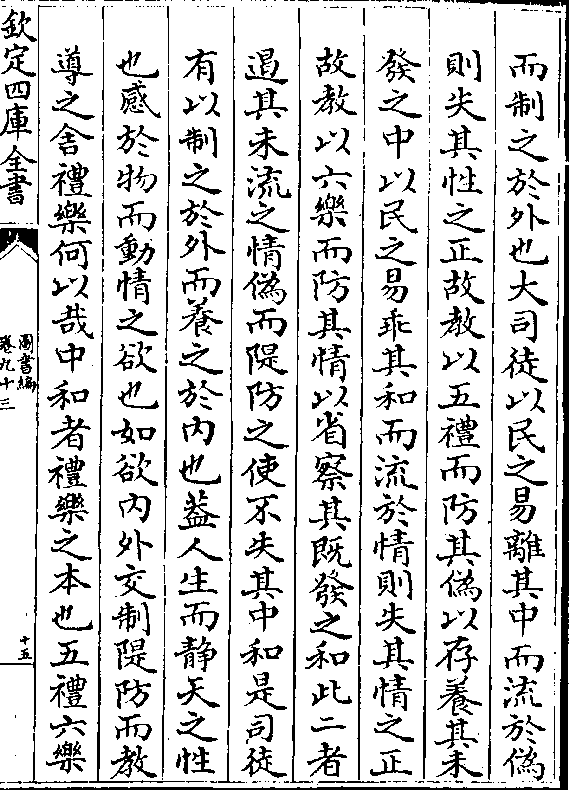 而制之於外也大司徒以民之易離其中而流於偽
則失其性之正故教以五禮而防其偽以存養其未
發之中以民之易乖其和而流於情則失其情之正
故教以六樂而防其情以省察其既發之和此二者
遏其未流之情偽而隄防之使不失其中和是司徒
有以制之於外而養之於内也葢人生而静天之性
也感於物而動情之欲也如欲内外交制隄防而教
導之舍禮樂何以哉中和者禮樂之本也五禮六樂
欽定四庫全書
圖書編
卷九十三
十五